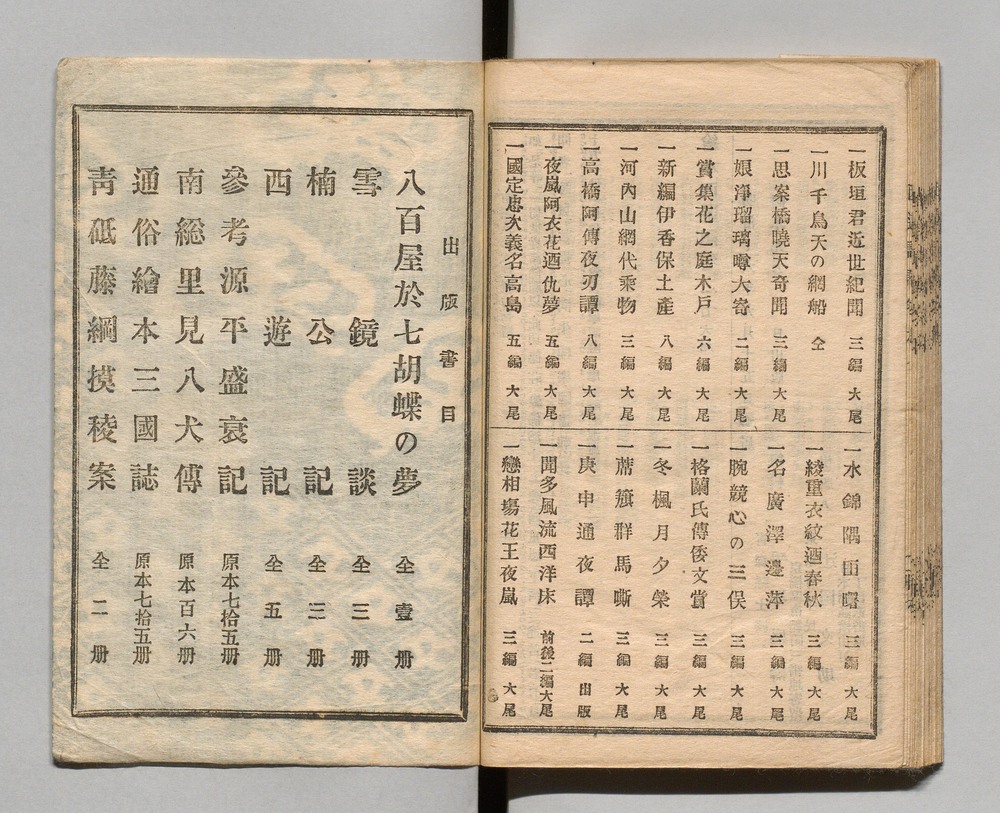 一板垣君近世紀聞 三編大尾
一川千鳥天の網船 仝
一思案橋曉天奇聞 三編大尾
一娘淨瑠璃噂大寄 二編大尾
一賞集花之庭木戸 六編大尾
一新編伊香保土產 八編大尾
一河內山網代乘物 三編大尾
一高橋阿傳夜刃譚 八編大尾
一夜嵐阿衣花廼仇夢 五編大尾
一國定忠次義名高島 五編大尾
一水錦隅田曙 三編大尾
一綾重衣紋廼春秋 三編大尾
一名廣澤邊萍 三編大尾
一腕競心の三俣 三編大尾
一格蘭氏傳倭文賞 三編大尾
一冬楓月夕榮 三編大尾
一蓆籏群馬嘶 三編大尾
一庚申通夜譚 二編出版
一聞多風流西洋床 前後二編大尾
一戀相塲花王夜嵐 三編大尾
出版書目
八百屋於七胡蝶の夢 全壹册
雪鏡談 全三册
楠公記 全三册
西遊記 全五册
參考源平盛衰記 原本七拾五册
南総里見八犬傳 原本百六册
通俗繪本三國誌 原本七拾五册
靑砥藤綱摸稜案 全二册